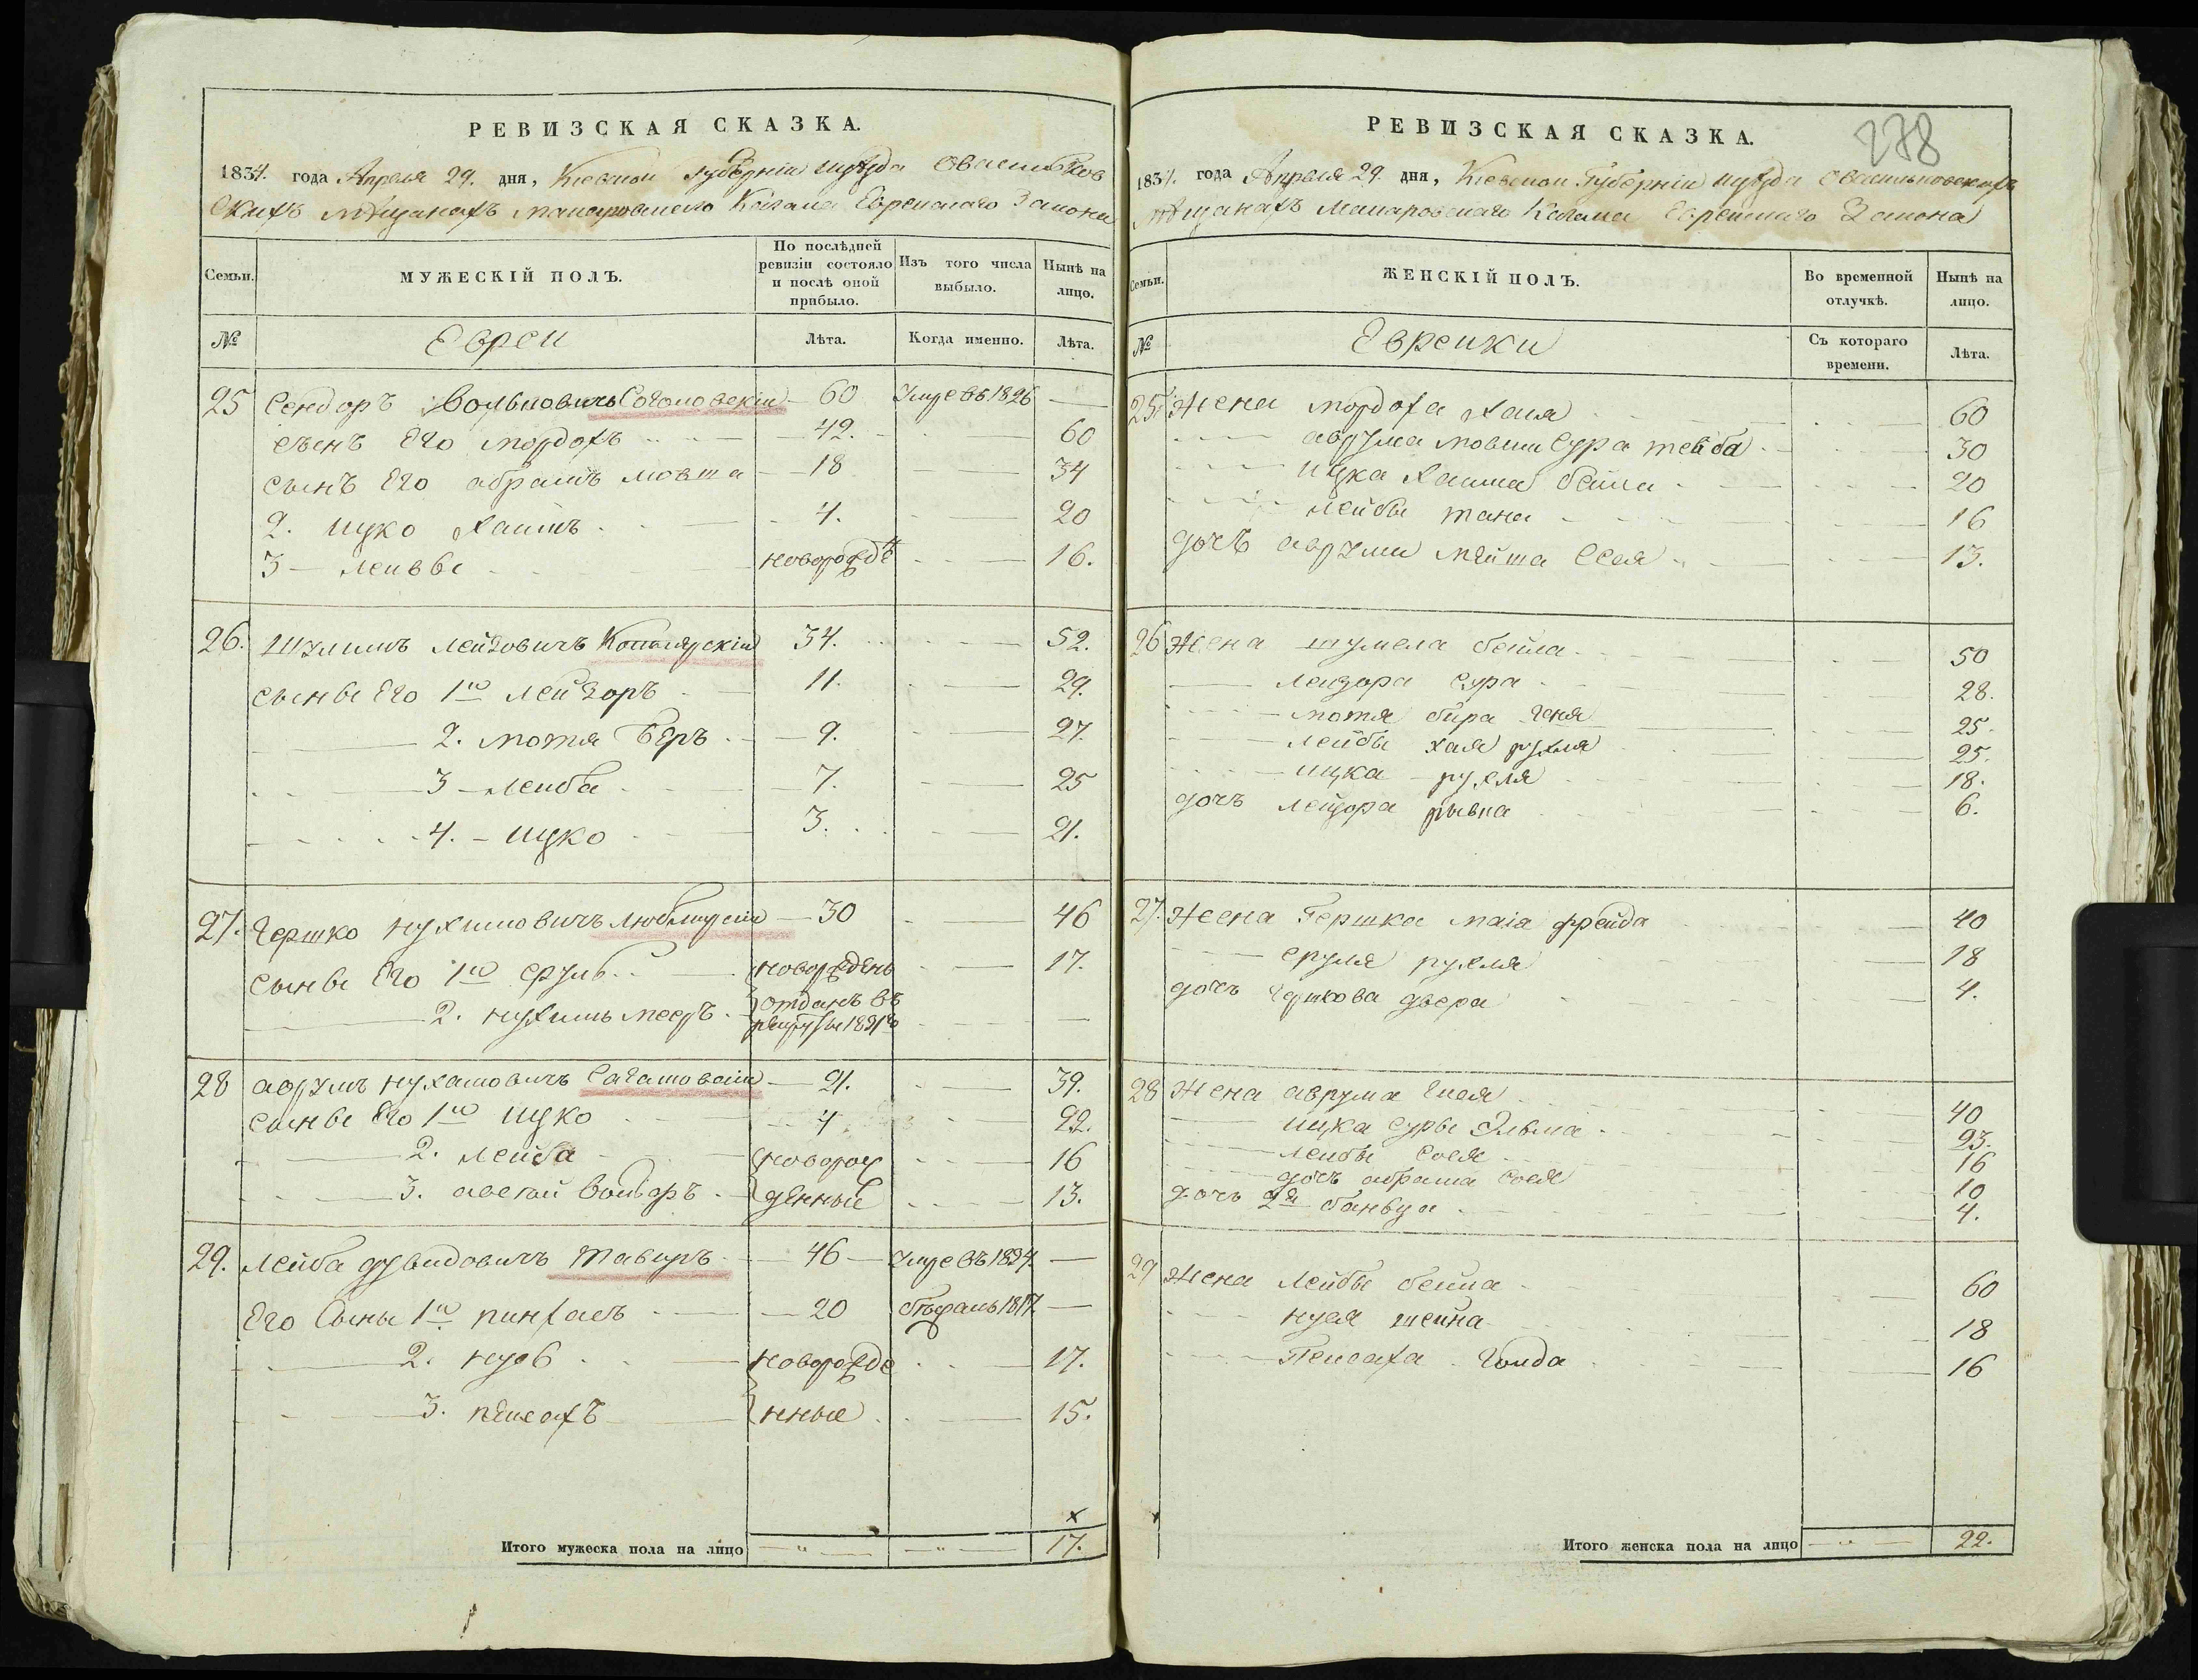 РЕВИЗСКАЯ СКАЗКА.
1834. года Апреля 29. дня, Киевской Губерніи уѣзда о Васильков
скихъ мѣщанахъ Макаровского Кагала Еврейского Закона
Семьи. МУЖЕСКІЙ ПОЛЪ. По послѣдней ревизіи состояло и послѣ оной прибыло. Изъ того числа выбыло. Нынѣ на лицо.
№ Евреи Лѣта. Когда именно. Лѣта.
25 Сендоръ Вольковичъ 60 Умре въ 1826 —
сынъ Его Мордохъ 42. 60
сынъ Его абрамъ мовша 18 34
2. ицко Хаимъ 4. 20
3 — Лейбы новорожде 16.
26. Шулимъ Лейзовичъ 34. 52.
сыны Его 1й Лейзоръ 11. 29.
2. мотя Беръ 9. 27.
3 — Лейба 7. 25
4. — ицко 3. 21.
27. Гершко нухимовичъ 30 46
сыны Его 1й сруль новорждень 17.
2. нухимъ мееръ отданъ въ
рекруты —
28 аврумъ нухамовичъ 21. 39.
сыны Его 1й ицко 4 22.
2. Лейба новорож 16
3. денные 13.
29. Лейба дувидовичъ 46 — Умре въ —
Его Сыны 1й пинхасъ 20 —
2. нусь новорожде 17.
3. пейсахъ нные 15.
Итого мужеска пола на лицо — „ — — „ — 17.
РЕВИЗСКАЯ СКАЗКА.
278
1834. года Апреля 29. дня, Киевской Губерніи уѣзда о Васильковскихъ
мѣщанахъ Макаровскаго Кагала Еврейскаго Закона
Семьи. ЖЕНСКІЙ ПОЛЪ. Во временной отлучкѣ. Нынѣ на лицо.
№ Еврейки Съ котораго времени. Лѣта.
25. Жена мордоха Хая 60
аврума мовши Сура 30
ицка Хаима бейла 20
лейбы 16
дочь аврума 13.
26 Жена шумела бейла 50
лейзора Сура 28.
мотя 25.
лейбы хая рухля 25.
ицка — рухля 18.
дочь лейзора рывка 6.
27. Жена Гершка маія фрейда 40
сруля рухля 18
дочь двера 4.
28 Жена аврума 40
ицка суры 23.
лейбы 16
дочь абрама 10
дочь 2я 4.
29 Жена Лейбы бейла 60
нуся шейна 18
Пейсаха Голда 16
Итого женска пола на лицо — „ — 22.